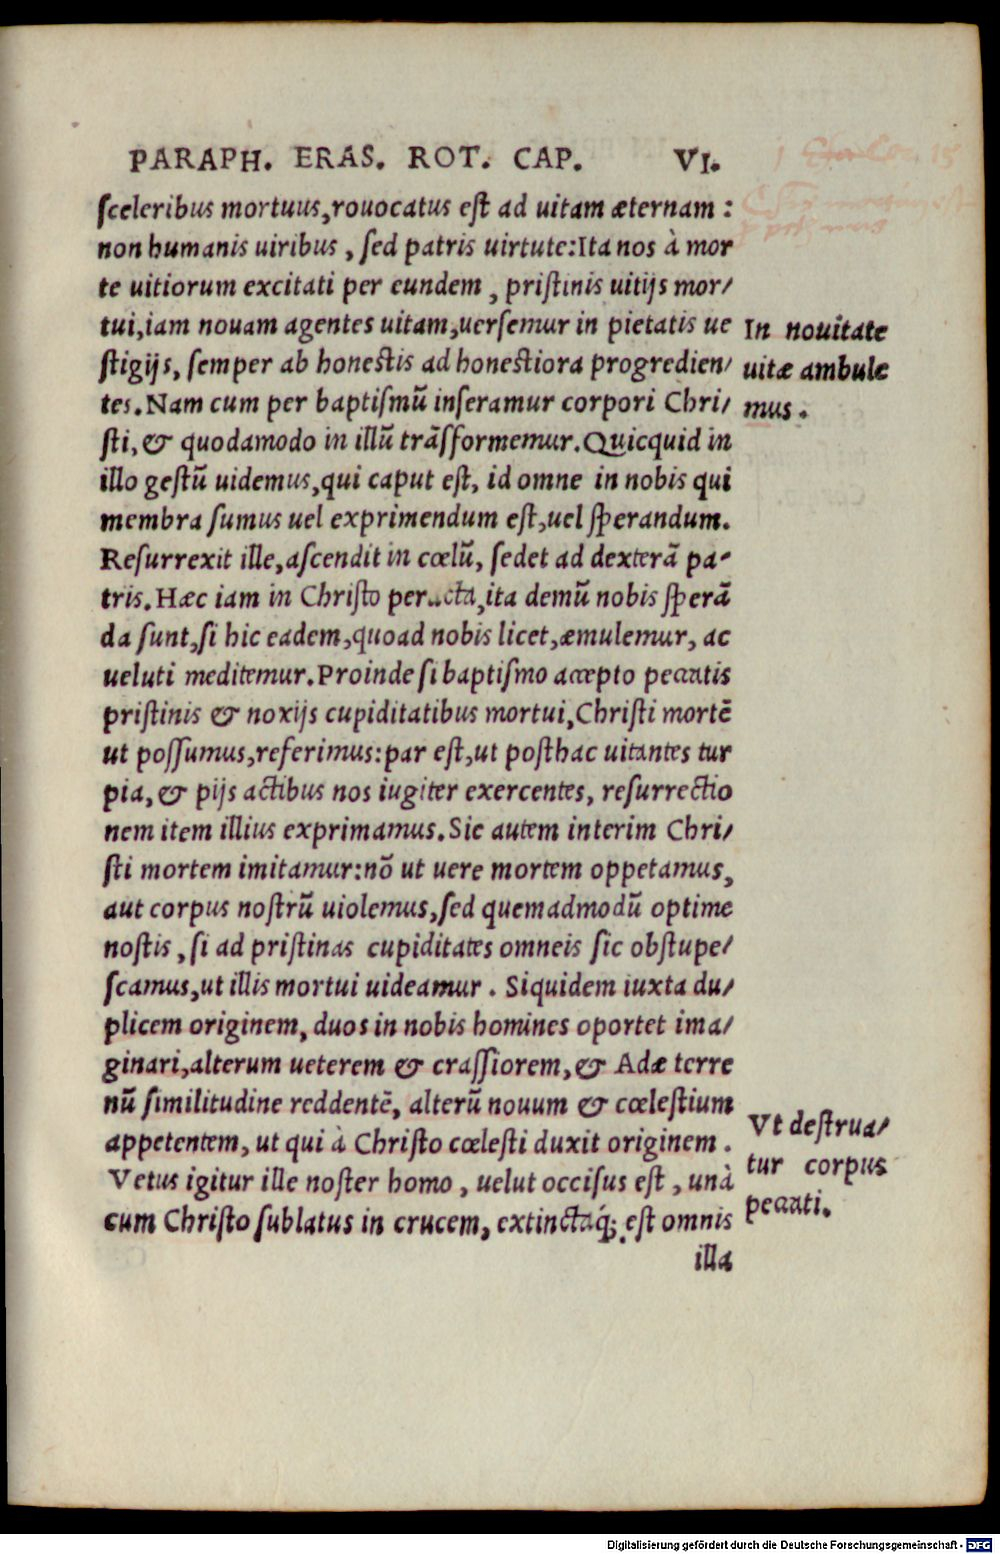 PARAPH. ERAS. ROT. CAP. VI.
ſceleribus mortuus,rouocatus eſt ad uitam æternam :
non humanis uiribus , ſed patris uirtute:Ita nos à mor
te uitiorum excitati per eundem , priſtinis uitijs mor/
tui,iam nouam agentes uitam,uerſemur in pietatis ue
ſtigijs, ſemper ab honeſtis ad honeſtiora progredien/
tes.Nam cum per baptiſmũ inſeramur corpori Chri/
ſti,& quodamodo in illũ trãſformemur.Quicquid in
illo geſtũ uidemus,qui caput eſt, id omne in nobis qui
membra ſumus uel exprimendum eſt,uel ſperandum.
Reſurrexit ille,aſcendit in cœlũ, ſedet ad dexterã pa-
tris.Hæc iam in Chriſto peracta,ita demũ nobis ſperã
da ſunt,ſi hic eadem,quoad nobis licet,æmulemur, ac
ueluti meditemur.Proinde ſi baptiſmo accepto peccatis
priſtinis & noxijs cupiditatibus mortui,Chriſti mortẽ
ut poſſumus,referimus:par eſt,ut poſthac uitantes tur
pia,& pijs actibus nos iugiter exercentes, reſurrectio
nem item illius exprimamus.Sic autem interim Chri/
ſti mortem imitamur:nõ ut uere mortem oppetamus,
aut corpus noſtrũ uiolemus,ſed quemadmodũ optime
noſtis , ſi ad priſtinas cupiditates omneis ſic obſtupe/
ſcamus,ut illis mortui uideamur . Siquidem iuxta du/
plicem originem, duos in nobis homines oportet ima/
ginari,alterum ueterem & craſſiorem,& Adæ terre
nũ ſimilitudine reddentẽ, alterũ nouum & cœleſtium
appetentem, ut qui à Chriſto cœleſti duxit originem .
Vetus igitur ille noſter homo , uelut occiſus eſt , unà
cum Chriſto ſublatus in crucem, extinctaq́; eſt omnis
illa
In nouitate
uitæ ambule
mus .
Vt deſtrua/
tur corpus
peccati.
Digitalisierung gefördert durch die Deutsche Forschungsgemeinschaft - DFG